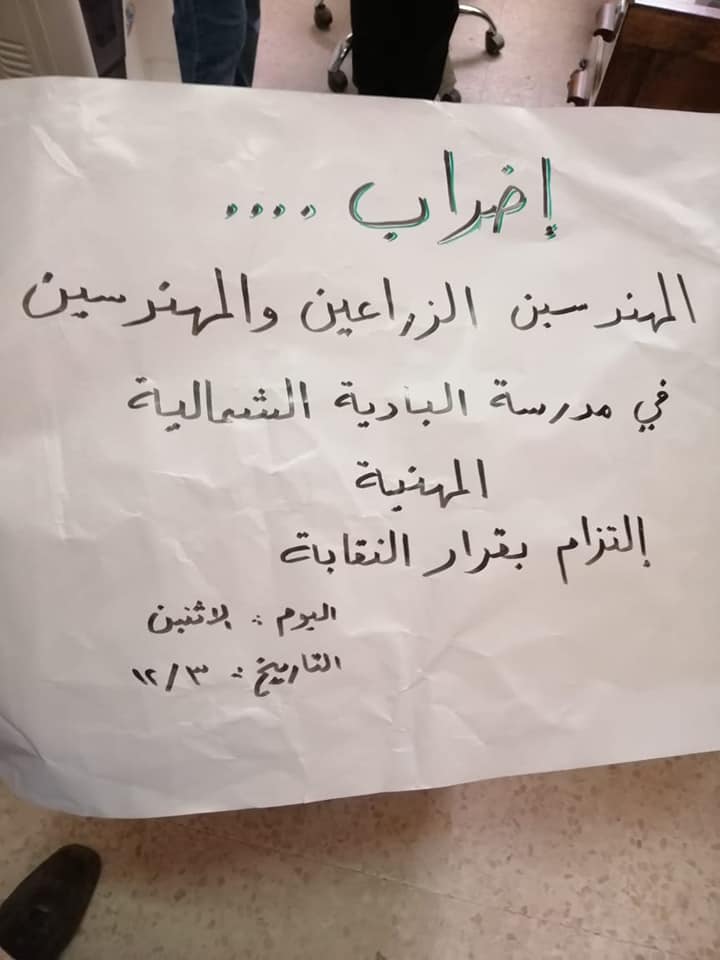 إضراب ....
المهندسين الزراعين والمهندسين
في مدرسة البادية الشمالية
المهنية
إلتزام بقرار النقابة
اليوم : الاثنين
التاريخ : ١٢/٣